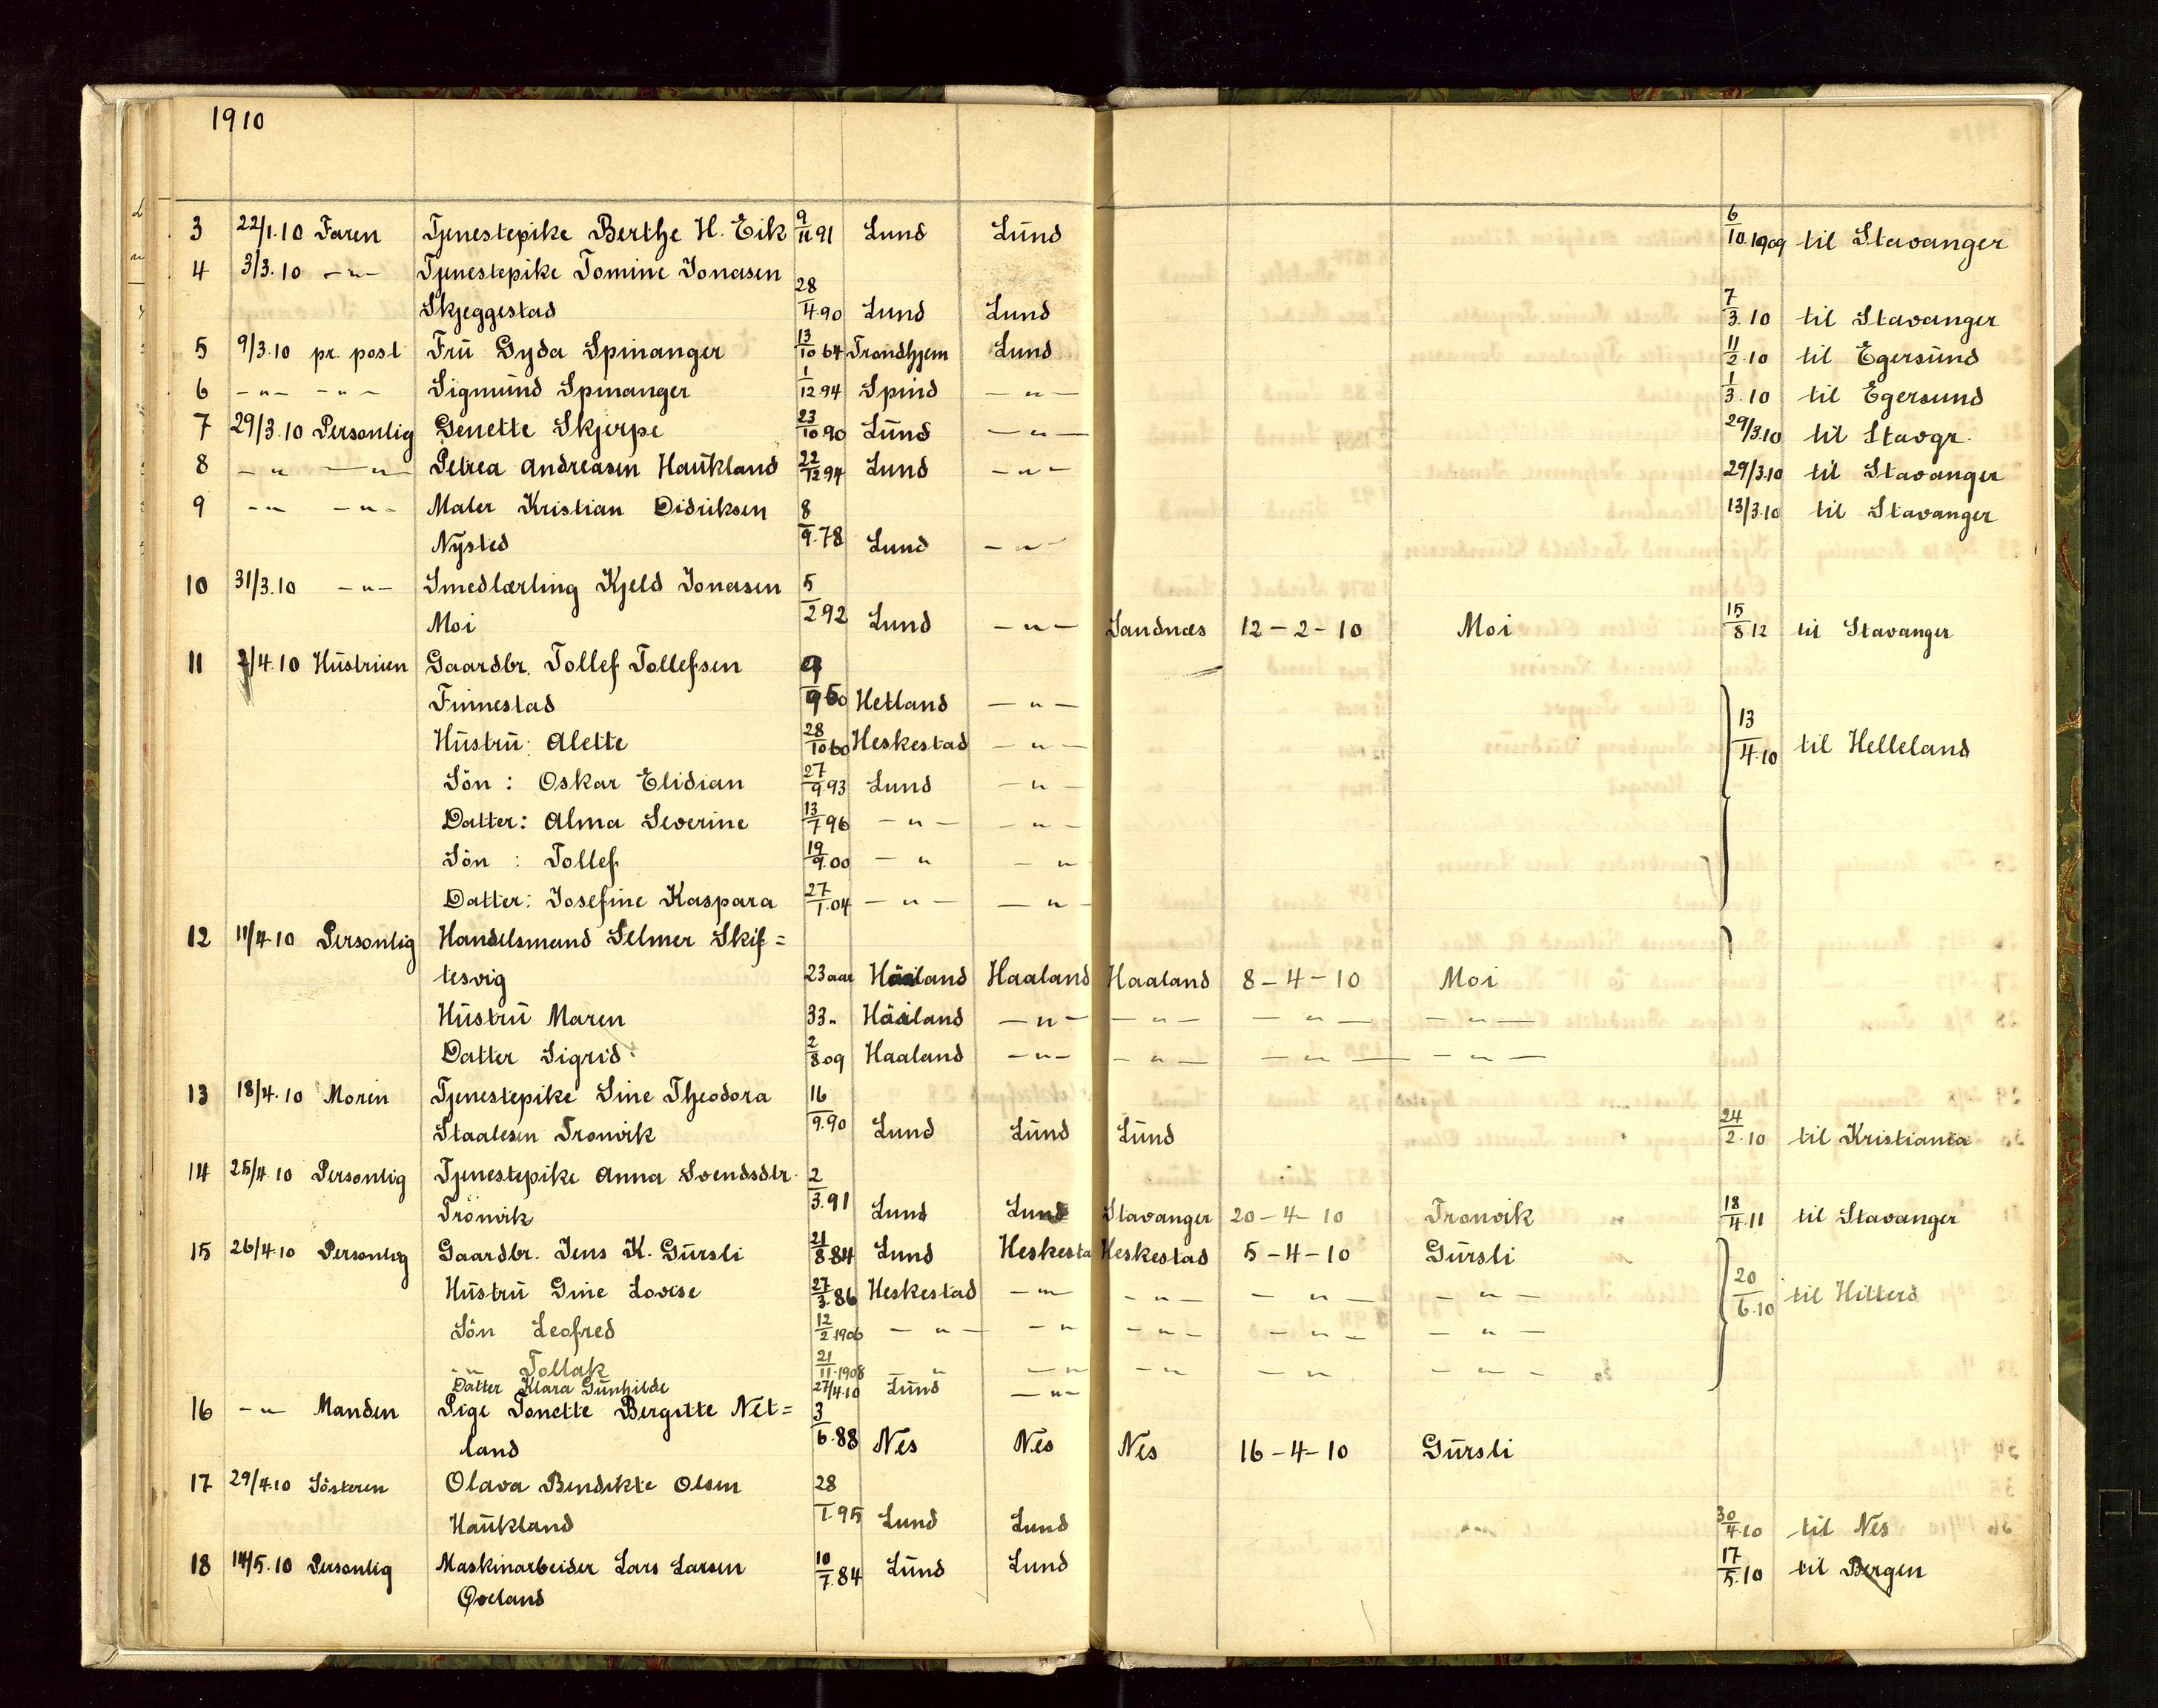 1910
3 22/1.10 Faren Tjenestepike Berthe H. Eik 9/11 91 Lund Lund 6/10.1909 til Stavanger
4 3/3.10 -"- Tjenestepike Tomine Jonasen
Skjeggestad 28/4.90 Lund Lund 7/3.10 til Stavanger
5 9/3.10 pr. post Fru Gyda Spinanger 13/10 64 Trondhjem Lund 11/2.10 til Egersund
6 -"- -"- Sigmund Spinanger 1/12 94 Spind -"- 1/3.10 til Egersund
7 29/3.10 Personlig Genette Skjerpe 23/10 90 Lund -"- 29/3.10 til Stavgr.
8 -"- -"- Petrea Andreasen Haukland 22/12 94 Lund -"- 29/3.10 til Stavanger
9 -"- -"- Maler Kristian Didriksen 8 13/3.10 til Stavanger
Nysted 9.78 Lund -"-
10 31/3.10 -"- Smedlærling Kjeld Jonasen 5
Moi 2 92 Lund -"- Sandnæs 12-2-10 Moi 15/8 12 til Stavanger
11 2/4.10 Hustruen Gaardbr. Tollef Tollefsen 9
Finnestad 9 60 Hetland -"-
Hustru: Alette 28/10 60 Heskestad -"- 13/4.10 til Helleland
Sön: Oskar Elidian 27/9.93 Lund -"-
Datter: Alma Severine 13/7 96 -"- -"-
Sön: Tollef 19/9.00 -"- -"-
Datter: Josefine Kaspara 27/1.04 -"- -"-
12 11/4.10 Personlig Handelsmand Selmer Skif=
tesvig 23 aar Haaland Haaland Haaland 8-4-10 Moi
Hustru Maren 33" Haaland -"- -"- -"- -"-
Datter Sigrid 2/8 09 Haaland -"- -"- -"- -"-
13 18/4.10 Moren Tjenestepike Sine Theodora 16
Staalesen Tronvik 9.90 Lund Lund Lund 24/2.10 til Kristiania
14 25/4.10 Personlig Tjenestepike Anna Svendsdtr. 2
Tronvik 3.91 Lund Lund Stavanger 20-4-10 Tronvik 18/4.11 til Stavanger
15 26/4.10 Personlig Gaardbr. Jens K. Gursli 21/8.84 Lund Heskesta Heskestad 5-4-10 Gursli
Hustru Gine Lovise 27/3.86 Heskestad -"- -"- -"- -"- 20/6.10 til Hitterö
Sön Leofred 12/2.1906 -"- -"- -"- -"- -"-
-"- Tollak 21/11.1908 -"- -"- -"- -"- -"-
Datter Klara Gunhilde 27/4.10 Lund -"-
16 -"- Manden Pige Tonette Bergitte Net= 3
land 6.88 Nes Nes Nes 16-4-10 Gursli
17 29/4.10 Sösteren Olava Bendikte Olsen 28
Haukland 1.95 Lund Lund 30/4.10 til Nes
18 14/5.10 Personlig Maskinarbeider Lars Larsen 10/7.84 Lund Lund 17/5.10 til Bergen
Qveland